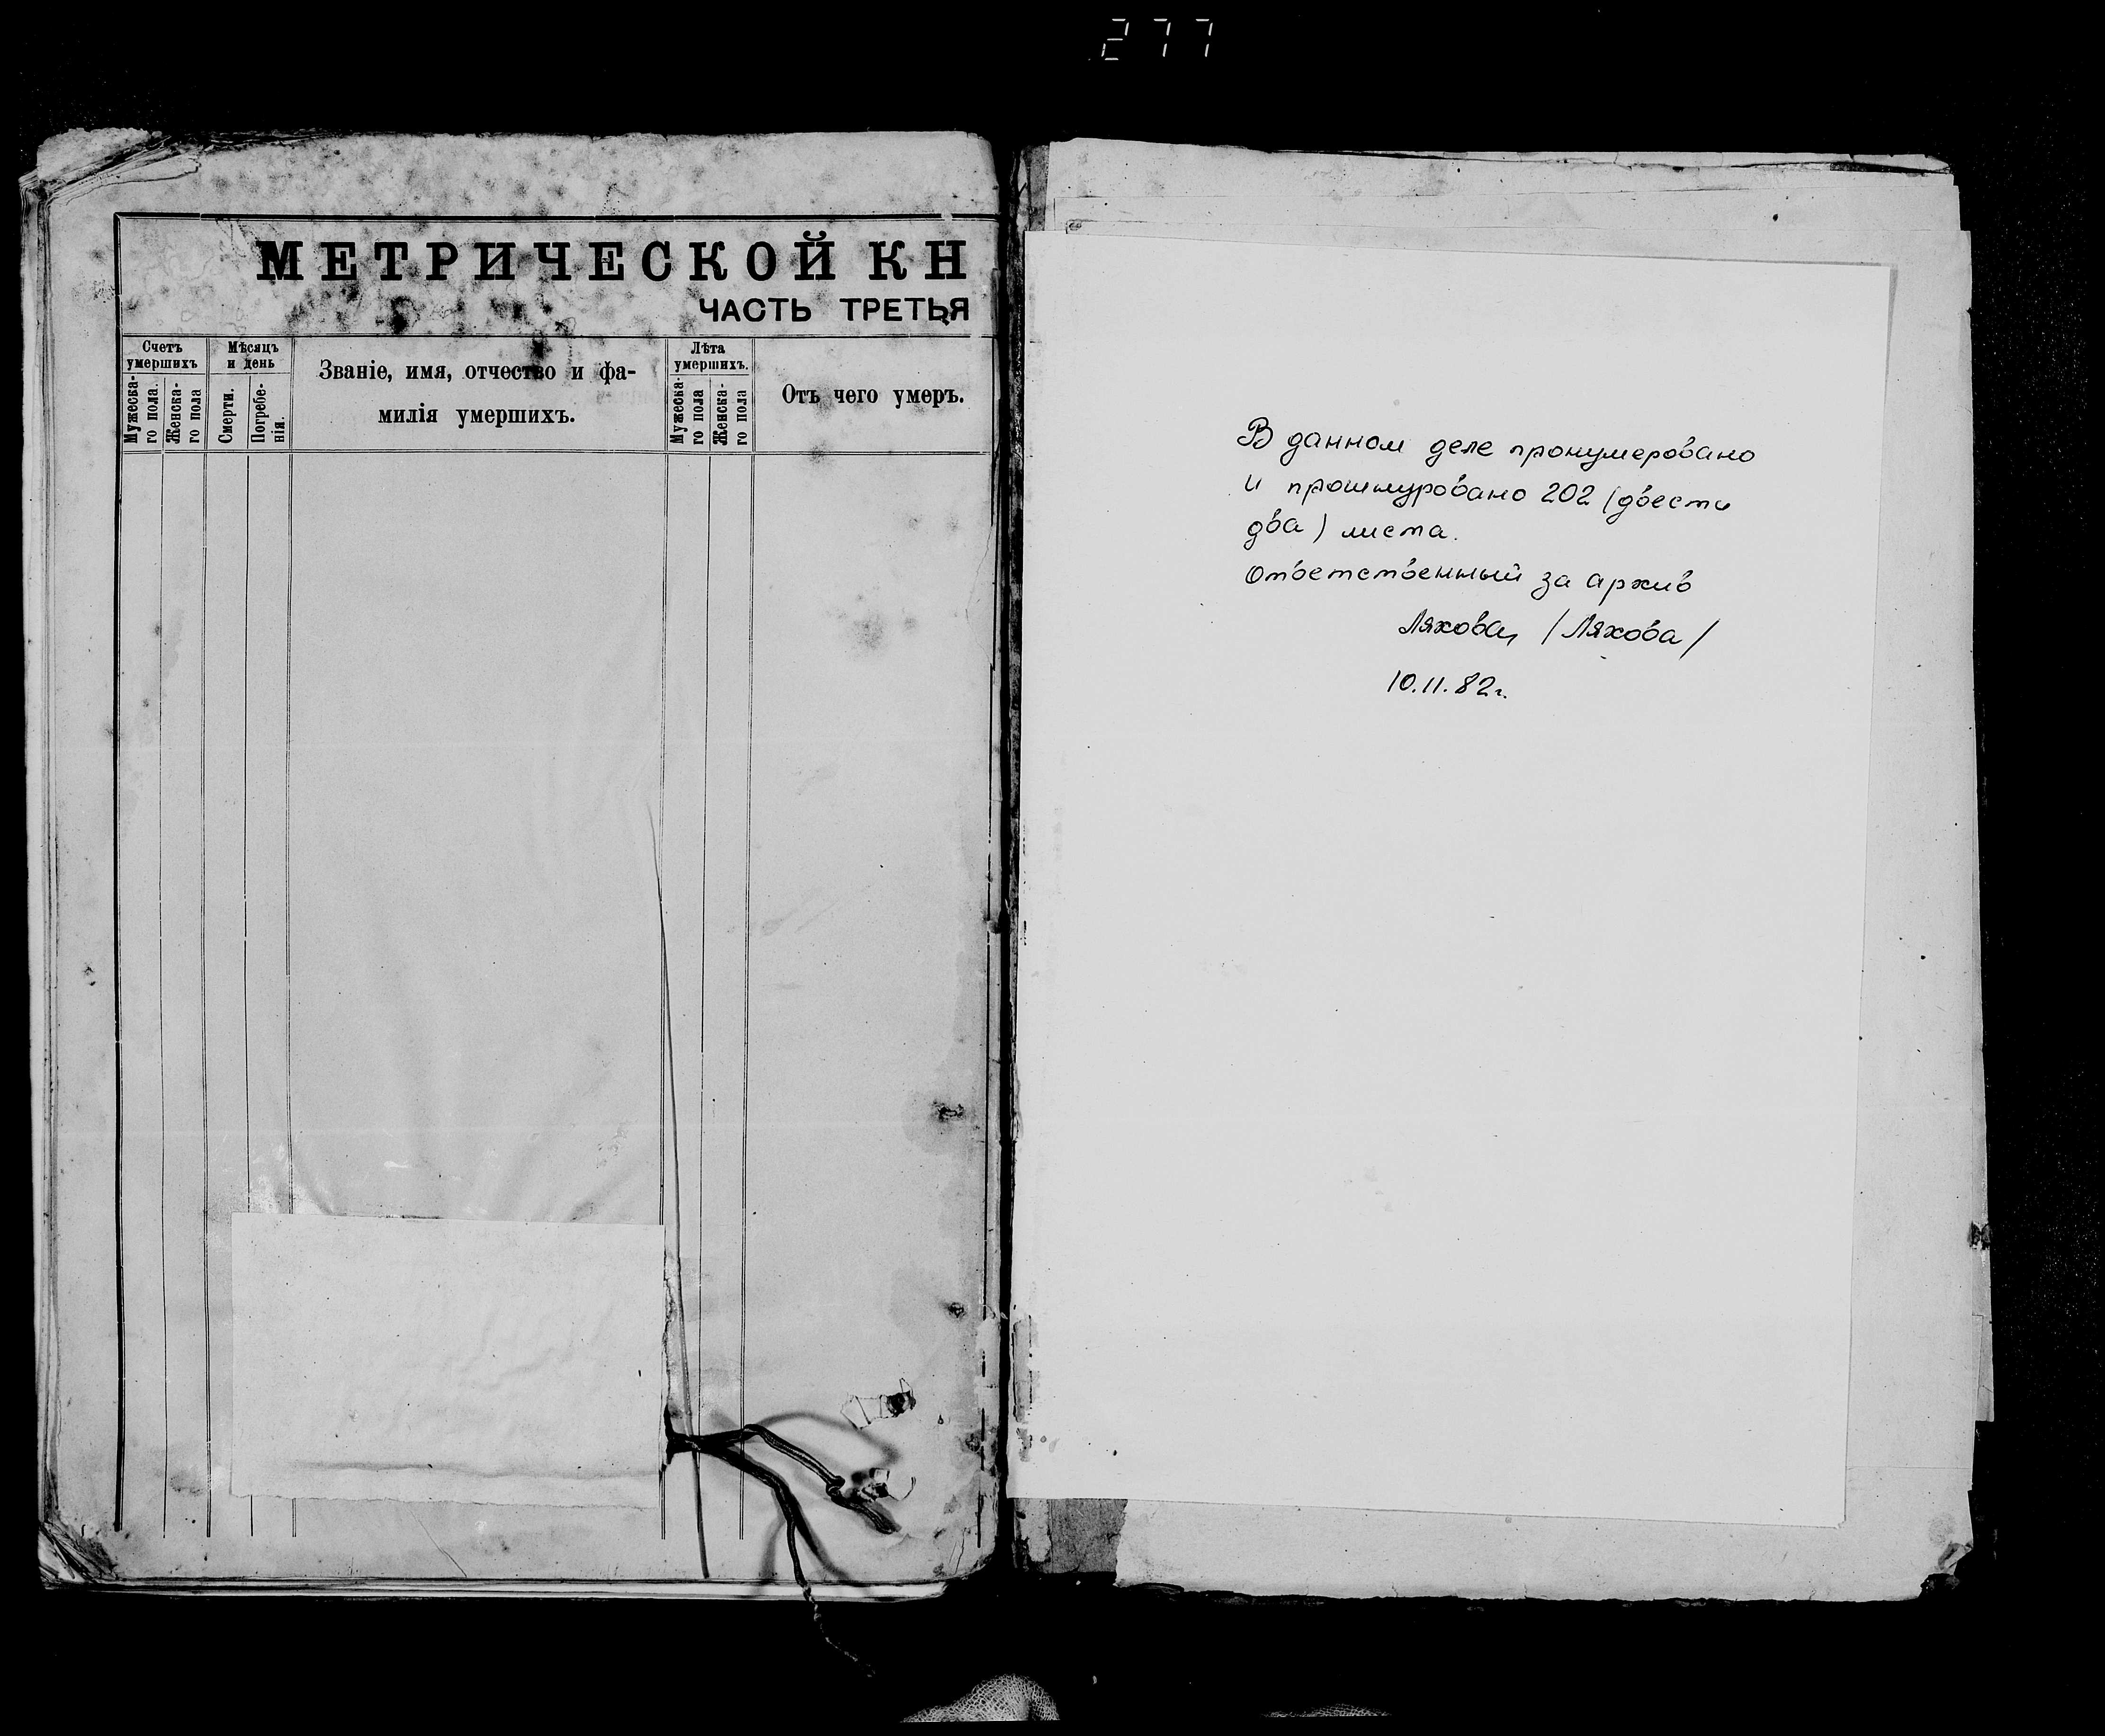 277
МЕТРИЧЕСКОЙ КН
ЧАСТЬ ТРЕТЬЯ
Счетъ умершихъ
Мужеска-го пола.
Женска-го пола
Мѣсяцъ и день
Смерти.
Погребе-нія.
Званіе, имя, отчество и фа-
милія умершихъ.
Лѣта умершихъ.
Мужеска-го пола
Женска-го пола
Отъ чего умеръ.
В данном деле пронумеровано
и прошнуровано 202 (двести
два) листа.
Ответственный за архив
Ляхова /Ляхова/
10.11.82г.